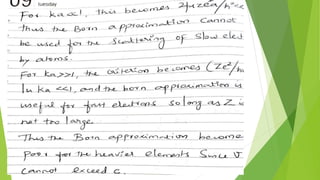 09 Tuesday
For ka<<1, this becomes 2μzea/ħ²<<
Thus the Born approximation cannot
be used for the scattering of slow elect
by atoms.
For ka>>1, the criterion becomes (Ze²/ħ
ln ka <<1, and the born approximation is
useful for fast electrons so long as Z is
not too large.
Thus the Born approximation become
Poor for the heavier elements since v
cannot exceed c.